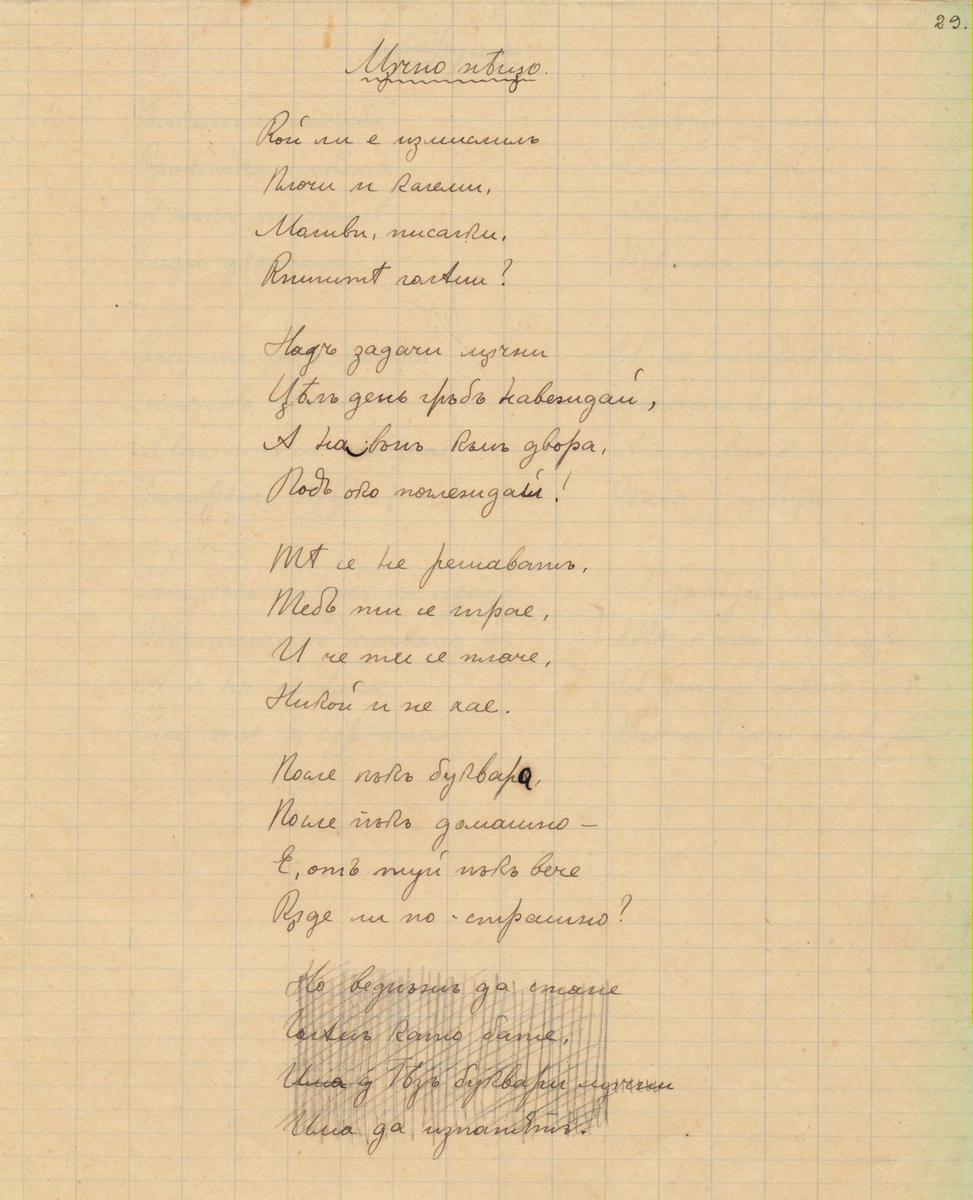 29.
Мѫчно нѣщо.
Кой ли е измислилъ
Плочи и калеми,
Моливи, писалки,
Книгитѣ голѣми?
Надъ задачи мѫчни
Цѣлъ день гръбъ навеждай,
А на вънъ къмъ двора,
Подъ око поглеждай!
Тѣ се не решаватъ,
Тебъ ти се играе,
И че ти се плаче,
Никой и не хае.
После пъкъ буквара,
После пъкъ домашно —
Е, отъ туй пъкъ вече
Кѫде ли по-страшно?
Но веднъжъ да стане
Голѣмъ като бате,
Има д Тѣзъ буквари мѫчни
Има да изпатятъ.